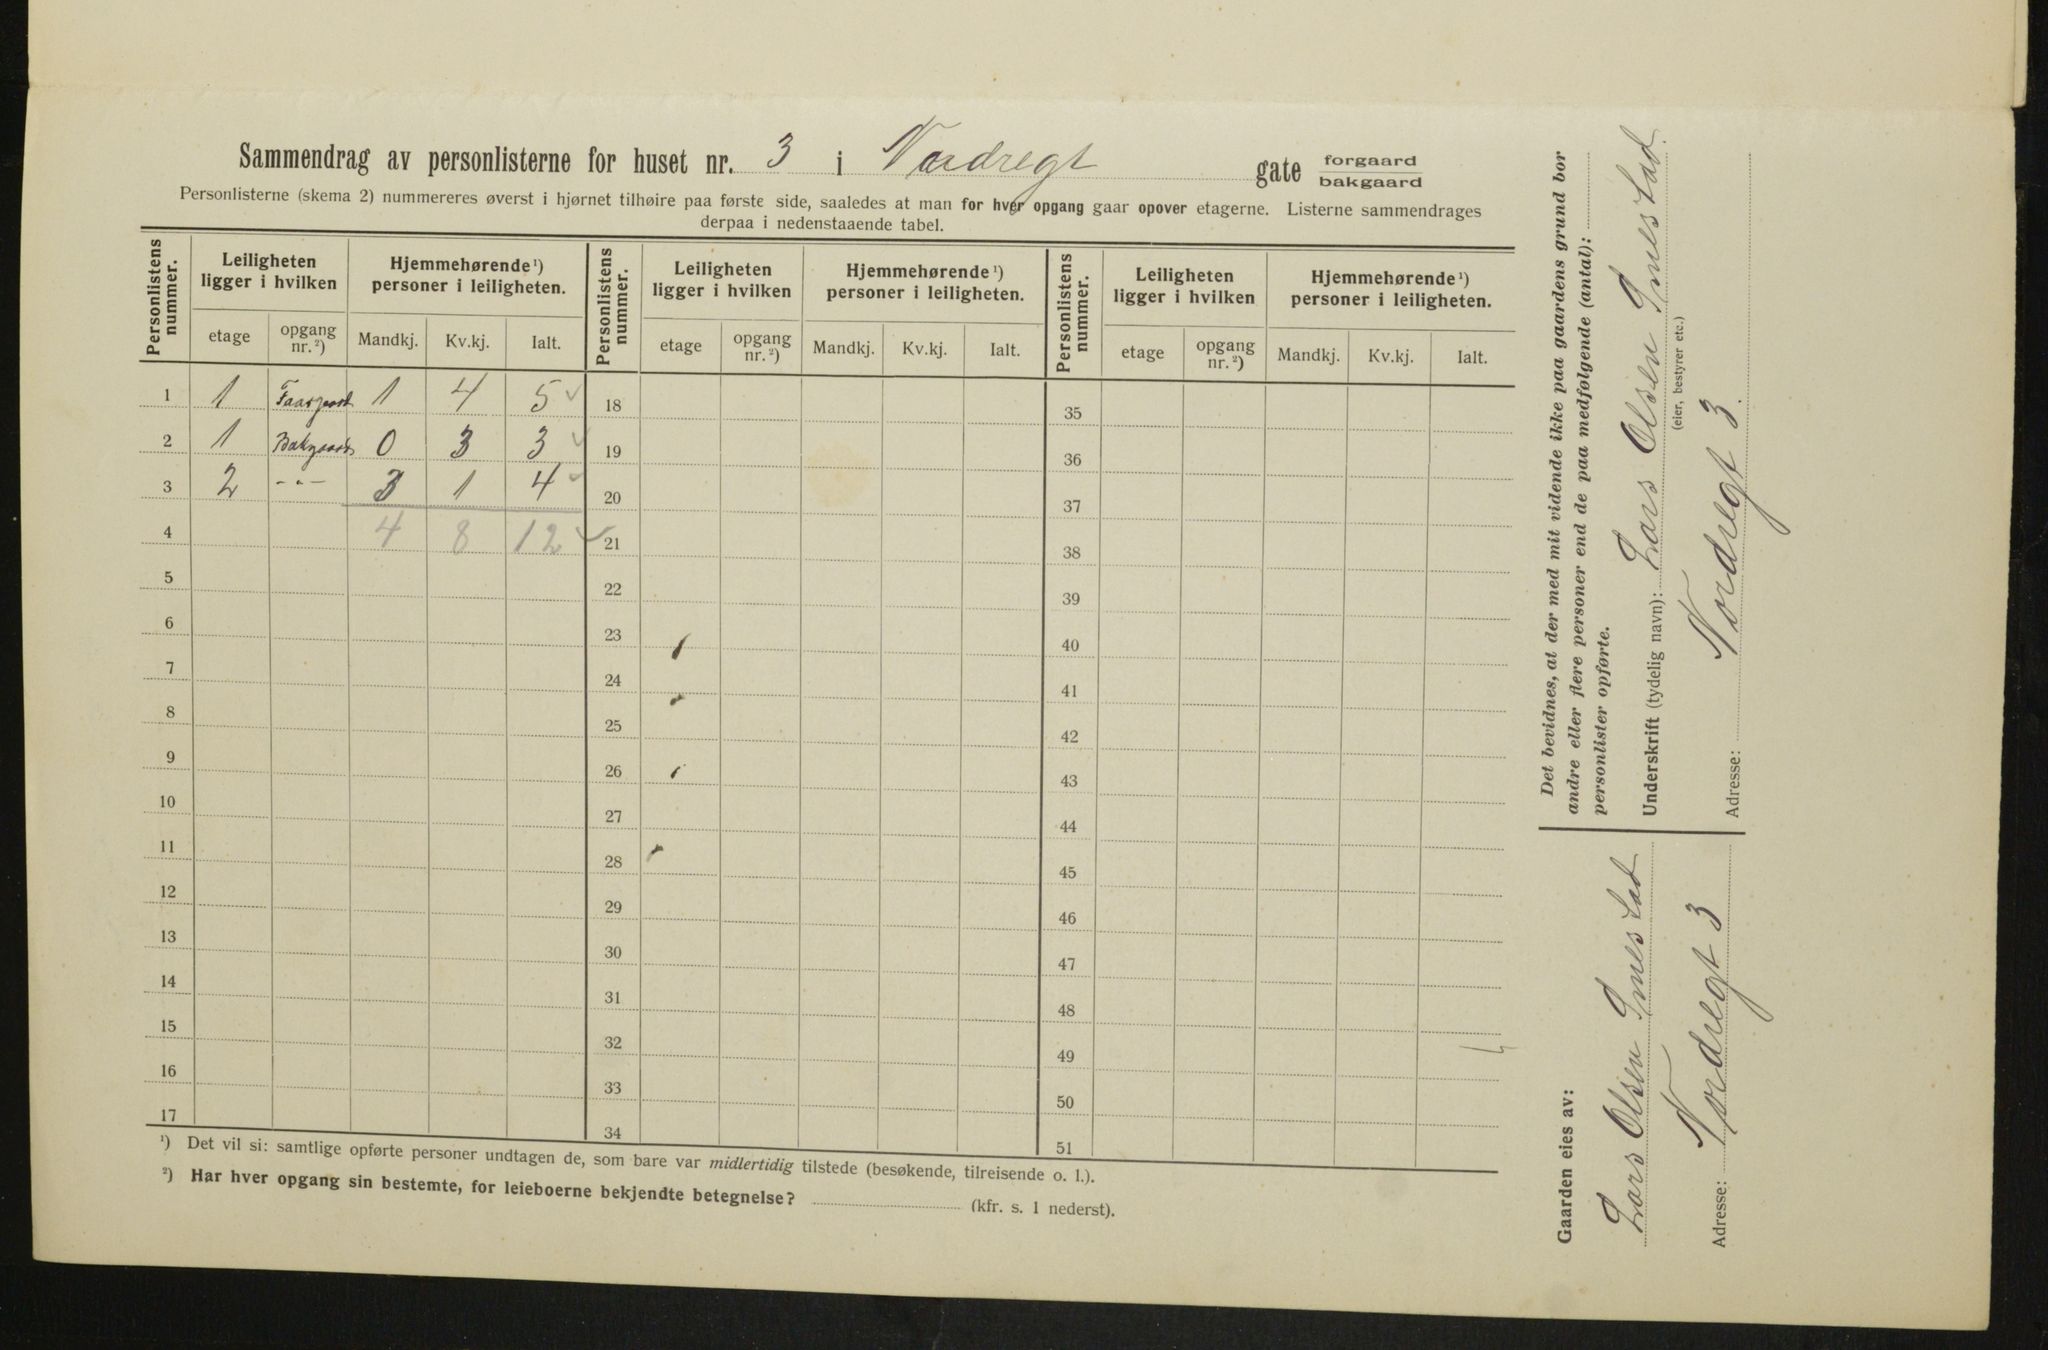 Sammendrag av personlisterne for huset nr. 3 i Nordregt gate forgaard
bakgaard
Personlisterne (skema 2) nummereres øverst i hjørnet tilhøire paa første side, saaledes at man for hver opgang gaar opover etagerne. Listerne sammendrages
derpaa i nedenstaaende tabel.
Personlistens nummer. Leiligheten ligger i hvilken Hjemmehørende¹) personer i leiligheten. Personlistens nummer. Leiligheten ligger i hvilken Hjemmehørende¹) personer i leiligheten. Personlistens nummer. Leiligheten ligger i hvilken Hjemmehørende¹) personer i leiligheten.
etage opgang nr.²) Mandkj. Kv.kj. Ialt. etage opgang nr.²) Mandkj. Kv.kj. Ialt. etage opgang nr.²) Mandkj. Kv.kj. Ialt.
1 1 Faargaard 1 4 5 ✓ 18 35
2 1 Bakgaard 0 3 3 ✓ 19 36
3 2 -"- 3 1 4 ✓ 20 37
4 4 8 12 ✓ 21 38
5 22 39
6 23 40
7 24 41
8 25 42
9 26 43
10 27 44
11 28 45
12 29 46
13 30 47
14 31 48
15 32 49
16 33 50
17 34 51
¹) Det vil si: samtlige opførte personer undtagen de, som bare var midlertidig tilstede (besøkende, tilreisende o. l.).
²) Har hver opgang sin bestemte, for leieboerne bekjendte betegnelse? (kfr. s. 1 nederst).
Det bevidnes, at der med mit vidende ikke paa gaardens grund bor
andre eller flere personer end de paa medfølgende (antal):
personlister opførte.
Underskrift (tydelig navn): Lars Olsen Smestad
(eier, bestyrer etc.)
Adresse: Nordregt 3.
Gaarden eies av:
Lars Olsen Smestad
Adresse: Nordregt 3